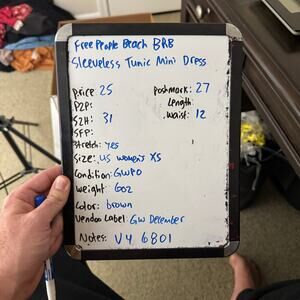 Free People Beach BRB
Sleeveless Tunic Mini Dress
Price: 25 poshmark: 27
P2P: Length:
S2H: 31 waist: 12
SFP:
Stretch: yes
Size: US women's XS
Condition: GWPO
weight: 6oz
Color: brown
Vendoo Label: GW December
Notes: V4 6801